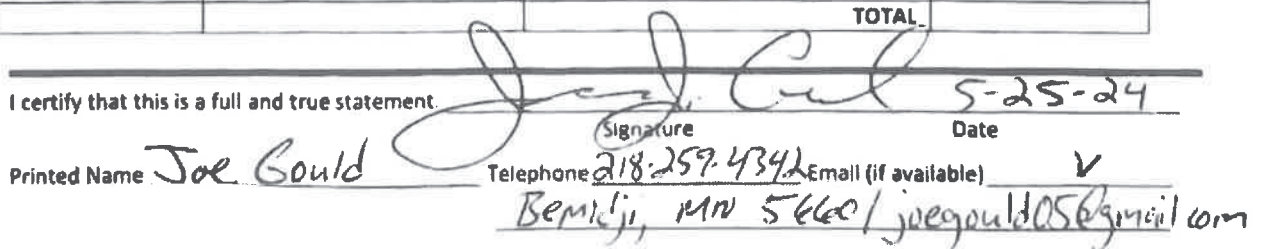 TOTAL
I certify that this is a full and true statement. 5-25-24
Signature Date
Printed Name Joe Gould Telephone 218-259-4342 Email (if available) V
Bemidji, MN 56601 joegould05@gmail.com